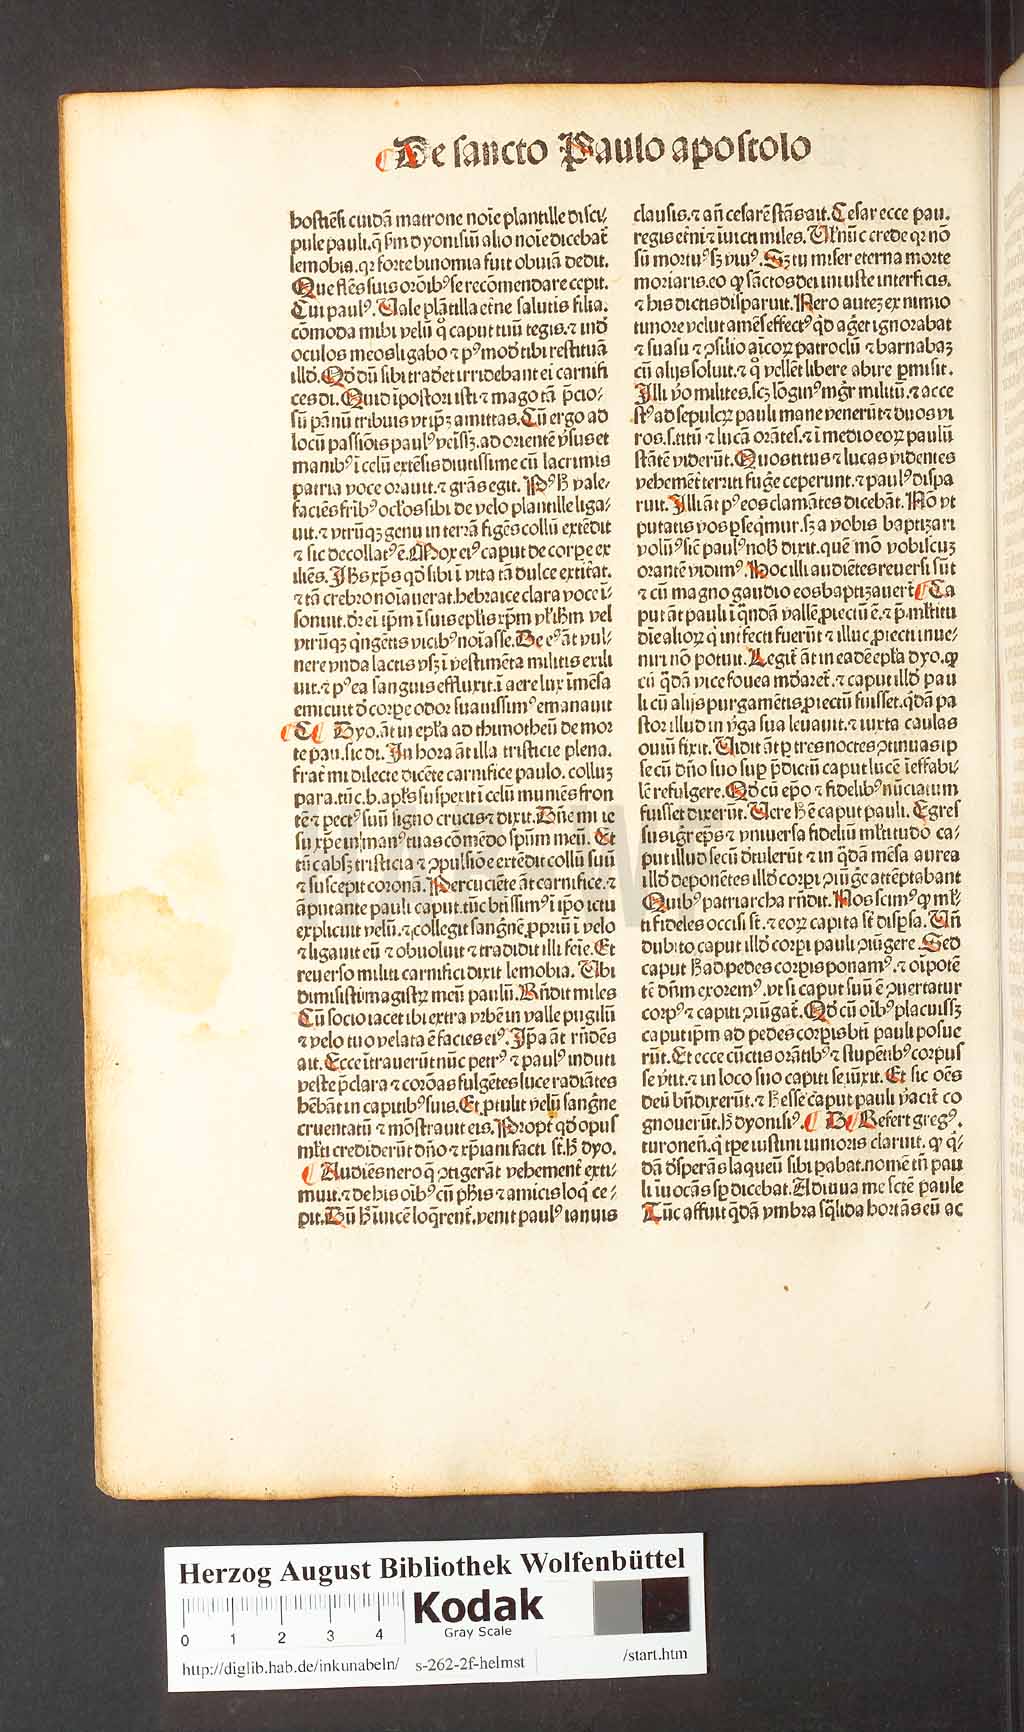 De sancto Paulo apostolo
hostiēsi cuidā matrone noīe plantille disci⸗
pule pauli. q̄ ẜm dyonisiū alio noīe dicebat̄
lemobia. qꝛ forte binomia fuit obuiā dedit.
Que flēs suis orōibꝰ se recōmendare cepit.
Cui paulꝰ. Uale plātilla etn̄e salutis filia.
cōmoda mihi velū qͦ caput tuū tegis. ⁊ inď
oculos meos ligabo ⁊ pꝰmoď tibi restituā
illď. Qď dū sibi trad̄et irridebant ei carnifi
ces di. Quid īpostori isti ⁊ mago tā p̄cio⸗
sū pānū tribuis vt ip̄ꝫ amittas. Cū ergo ad
locū passiōis paulꝰ veīsꝫ. ad orientē v̄sus et
manibꝰ ī celū extēsis diutissime cū lacrimis
patria voce orauit. ⁊ grās egit. Pꝰ ꝧ vale⸗
faciēs frībꝰ ocl̄os sibi de velo plantille liga⸗
uit. ⁊ vtrūqꝫ genu in terrā figēs collū extēdit
⁊ sic decollatꝰ ē. Mox eiꝰ caput de corꝑe ex
iliēs. Jhs xp̄s qď sibi ī vita tā dulce extit̄at.
⁊ tā crebro noīauerat. hebraice clara voce ī⸗
sonuit. dr̄ ei ip̄m ī suis epl̄is xp̄m vl̓ ihm̄ vel
vtrūqꝫ qͥngētis vicibꝰ noīasse. De eꝰ āt vul⸗
nere vnda lactis vsqꝫ ī vestimēta militis exili
uit. ⁊ pꝰea sanguis effluxit. ī aere lux īmēsa
emicuit ď corꝑe odor suauissimꝰ emanauit
C Dyo. āt in epl̄a ad thimotheū de mor
te pau. sic di. In hora āt illa tristicie plena.
frāt̄ mi dilecte dicēte carnifice paulo. colluꝫ
para. tūc b. apl̄s suspexit ī celū muniēs fron
tē ⁊ pectꝰ suū signo crucis ⁊ dixit. Dn̄e mi ie
su xp̄e in manꝰ tuas cōmēdo sp̄um meū. Et
tūc absꝫ tristicia ⁊ ꝯpulsiōe extēdit collū suū
⁊ suscepit coronā. Percuciēte āt carnifice. ⁊
āputante pauli caput. tūc btīssimꝰ ī ip̄o ictu
explicuit velū. ⁊ collegit sangnē ꝓpriū ī velo
⁊ ligauit eū ⁊ obuoluit ⁊ tradidit illi feīe. Et
reuerso militi carnifici dixit lemobia. Ubi
dimisisti magistꝝ meū paulū. Rn̄dit miles
Cū socio iacet ibi extra vrbē in valle pugilū
⁊ velo tuo velata ē facies eiꝰ. Ip̄a āt rn̄dēs
ait. Ecce ītrauerūt nūc petrꝰ ⁊ paulꝰ induti
veste p̄clara ⁊ corōas fulgētes luce radiātes
hēbāt in capitibꝰ suis. Et ꝓtulit velū sangn̄e
cruentatū ⁊ mōstrauit eis. Propt̄ qď opus
ml̄ti crediderūt dn̄o ⁊ xp̄iani facti st̄. ꝧ dyo.
Audiēs nero q̄ ꝯtigerāt vehement̄ exti⸗
muit. ⁊ de his oībꝰ cū ph̄is ⁊ amicis loqͥ ce⸗
pit. Dū ꝧ īuicē loq̄rent̄. venit paulꝰ ianuis
clausis. ⁊ an̄ cesarē stās ait. Cesar ecce pau.
regis et̄ni ⁊ īuicti miles. Ul̓ nūc crede qꝛ nō
sū mortuꝰ sꝫ viuꝰ. Sꝫ tu miser eterna morte
moriaris. eo ꝙ sāctos dei iniuste interficis.
⁊ his dictis disparuit. Nero auteꝫ ex nimio
timore velut amēs effectꝰ qď ag̓et ignorabat
⁊ suasu ⁊ ꝯsilio aīcoꝝ patroclū ⁊ barnabaꝫ
cū alijs soluit. ⁊ qͦ vellēt libere abire ꝑmisit.
Illi v̓o milites. scꝫ lōginꝰ mgr̄ militū. ⁊ acce
stꝰ ad sepulcꝝ pauli mane venerūt ⁊ duos vi
ros. s. titū ⁊ lucā orātes. ⁊ ī medio eoꝝ paulū
stātē viderūt. Quos titus ⁊ lucas videntes
vehemēt̄ territi fug̓e ceperunt. ⁊ paulꝰ dispa
ruit. Illi āt pꝰ eos clamātes dicebāt. Nō vt
putatis vos ꝑseqͥmur. sꝫ a vobis baptizari
volūꝰ sic̄ paulꝰ nob̄ dixit. quē mō vobiscuꝫ
orantē vidimꝰ. Hoc illi audiētes reuersi sūt
⁊ cū magno gaudio eos baptizauer̄t C Ca
put āt pauli ī qͣdā valle ꝓiectū ē. ⁊ p̄ ml̄titu
dīe alioꝝ qͥ int̓fecti fuerūt ⁊ illuc ꝓiecti inue⸗
niri nō potuit. Legit̄ āt in eadē epl̄a dyo. ꝙ
cū qͣdā vice fouea mūdaret̄. ⁊ caput illď pau
li cū alijs purgamētis ꝓiectū fuisset. qͥdā pa
stor illud in v̓ga sua leuauit. ⁊ iuxta caulas
ouiū fixit. Uidit āt ꝑ tres noctes ꝯtinuas ip
se cū dn̄o suo suꝑ p̄dictū caput lucē īeffabi⸗
lē refulgere. Qď cū ep̄o ⁊ fidelibꝰ nūciatum
fuisset dixerūt. Uere ꝧ ē caput pauli. Egres
sus igr̄ ep̄s ⁊ vniuersa fideliū ml̄titudo ca⸗
put illud secū ďtulerūt ⁊ in qͣdā mēsa aurea
illď deponētes illď corꝑi ꝯiūg̓e attēptabant
Quibꝰ patriarcha rn̄dit. Nos scimꝰ ꝙ ml̄
ti fideles occisi st̄. ⁊ eoꝝ capita st̄ disꝑsa. Un̄
dubito caput illď corꝑi pauli ꝯiūgere. Sed
caput ꝧ ad pedes corꝑis ponamꝰ. ⁊ oīpotē
tē dn̄m exoremꝰ. vt si caput suū ē ꝯuertatur
corpꝰ ⁊ capiti ꝯiūgat̄. Qď cū oībꝰ placuissꝫ
caput ip̄m ad pedes corꝑis bt̄i pauli posue
rūt. Et ecce cūctis orātibꝰ ⁊ stupētibꝰ corpus
se v̓tit. ⁊ in loco suo capiti se iūxit. Et sic oēs
deū bn̄dixerūt. ⁊ ꝧ esse caput pauli v̓acit̄ co
gnouerūt. ꝧ dyonisiꝰ. D Refert gregꝰ.
turonen̄. qͥ tp̄e iustini iunioris claruit. ꝙ qͥ⸗
dā ďsperās laqueū sibi ꝑabat. nomē tn̄ pau
li īuocās sp̄ dicebat. Adiuua me scē̄ paule
Tūc affuit qͣdā vmbra sqͣlida hortās eū ac
Herzog August Bibliothek Wolfenbüttel
0 1 2 3 4
Kodak
Gray Scale
http://diglib.hab.de/inkunabeln/ s-262-2f-helmst /start.htm